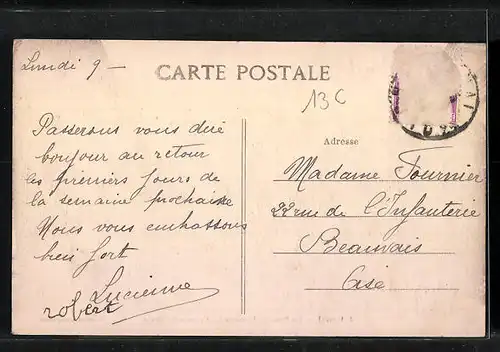 Lundi 9 -
CARTE POSTALE
13 C
Passerons vous dire
bonjour au retour
les premiers jours de
la semaine prochaine
Nous vous embrassons
bien fort
Lucienne
robert
Adresse
Madame Fournier
22 rue de l'Infanterie
Beauvais
Oise